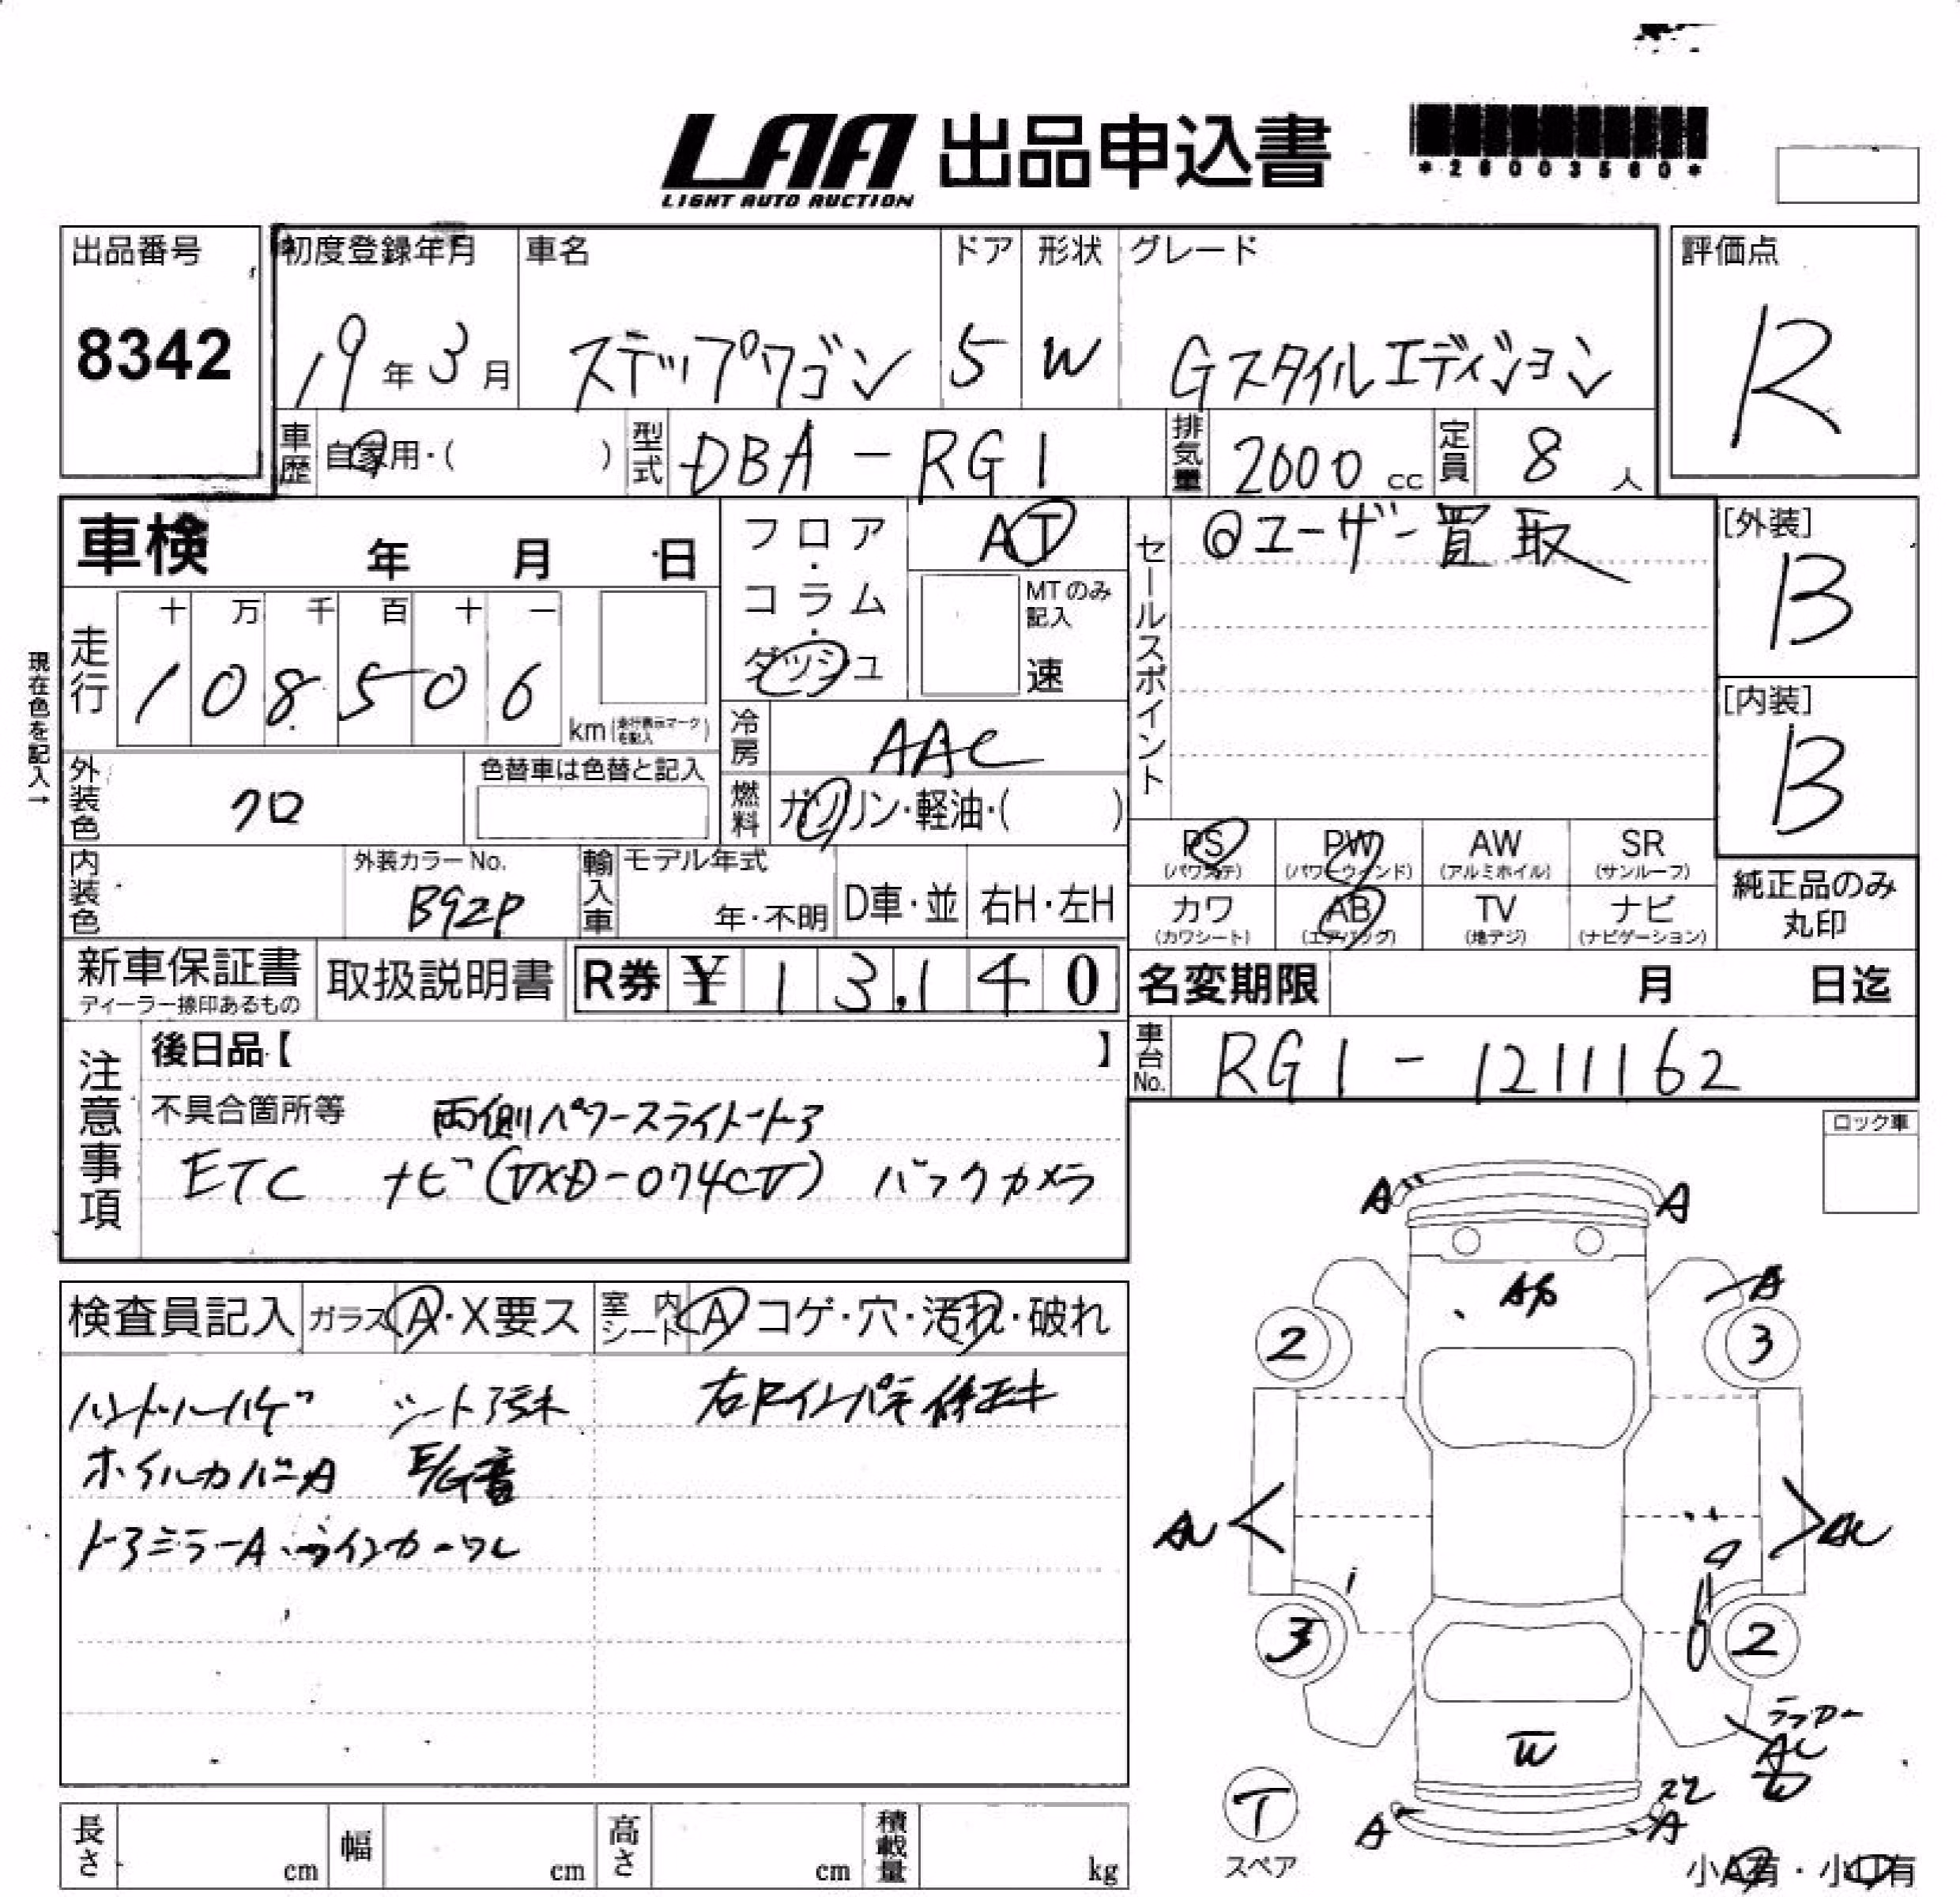 LAA 出品申込書
LIGHT AUTO AUCTION
*26003560*
出品番号
8342
初度登録年月
19年3月
車名
ステップワゴン
ドア
5
形状
W
グレード
Gスタイルエディション
評価点
R
車歴
自家用・( )
型式
DBA-RG1
排気量
2000cc
定員
8人
車検 年 月 日
フロア・コラム・ダッシュ
AT
MTのみ記入
速
セールスポイント
◎ユーザー買取
[外装]
B
[内装]
B
現在色を記入→
走行
十 万 千 百 十 一
1 0 8 5 0 6
km(走行表示マークを記入)
冷房
AAC
燃料
ガソリン・軽油・( )
外装色
クロ
色替車は色替と記入
内装色
外装カラーNo.
B92P
輸入車
モデル年式
年・不明
D車・並
右H・左H
PS (パワステ)
PW (パワーウィンド)
AW (アルミホイル)
SR (サンルーフ)
カワ (カワシート)
AB (エアバッグ)
TV (地デジ)
ナビ (ナビゲーション)
純正品のみ丸印
新車保証書
ディーラー捺印あるもの
取扱説明書
R券 ¥13,140
名変期限 月 日迄
車台No.
RG1-1211162
注意事項
後日品【 】
不具合箇所等 両側パワースライドドア
ETC ナビ(VXD-074CV) バックカメラ
ロック車
検査員記入
ガラス A・X要ス
室内シート A コゲ・穴・汚れ・破れ
ハンドルハゲ シート汚れ
ホイルカバーA E/G音
ドアミラーA ウインカーワレ
A A
A
2 3
3 2
W
T
スペア
A A
小A有・小凹有
長さ cm
幅 cm
高さ cm
積載量 kg